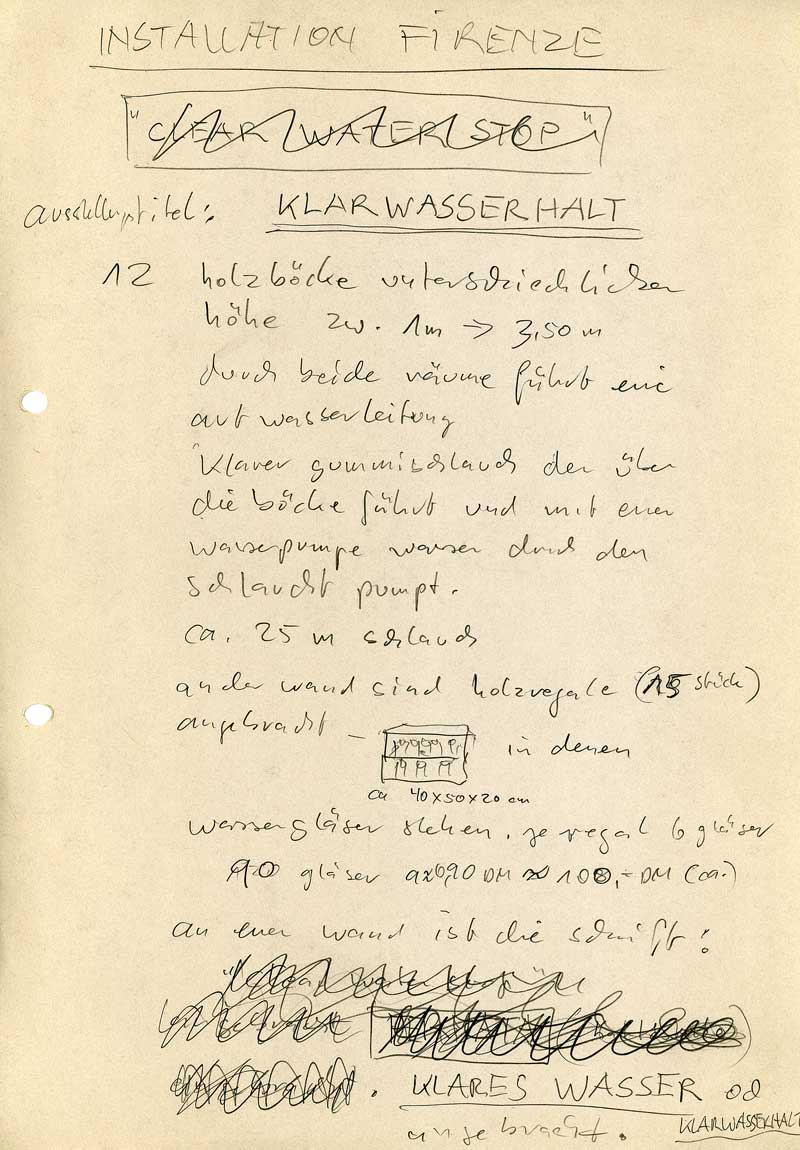 INSTALLATION FIRENZE
"CLEAR WATER STOP"
ausstellungstitel: KLARWASSERHALT
12 holzböcke unterschiedlicher
höhe zw. 1m → 3,50 m
durch beide räume führt eine
art wasserleitung
klarer gummischlauch der über
die böcke führt und mit einer
wasserpumpe wasser durch den
schlauch pumpt.
ca. 25 m schlauch
an der wand sind holzregale (15 stück)
angebracht – in denen
ca 40x50x20 cm
wassergläser stehen. je regal 6 gläser
90 gläser DM 100,- DM (ca.)
an einer wand ist die schrift:
. KLARES WASSER od
KLARWASSERHALT
angebracht.